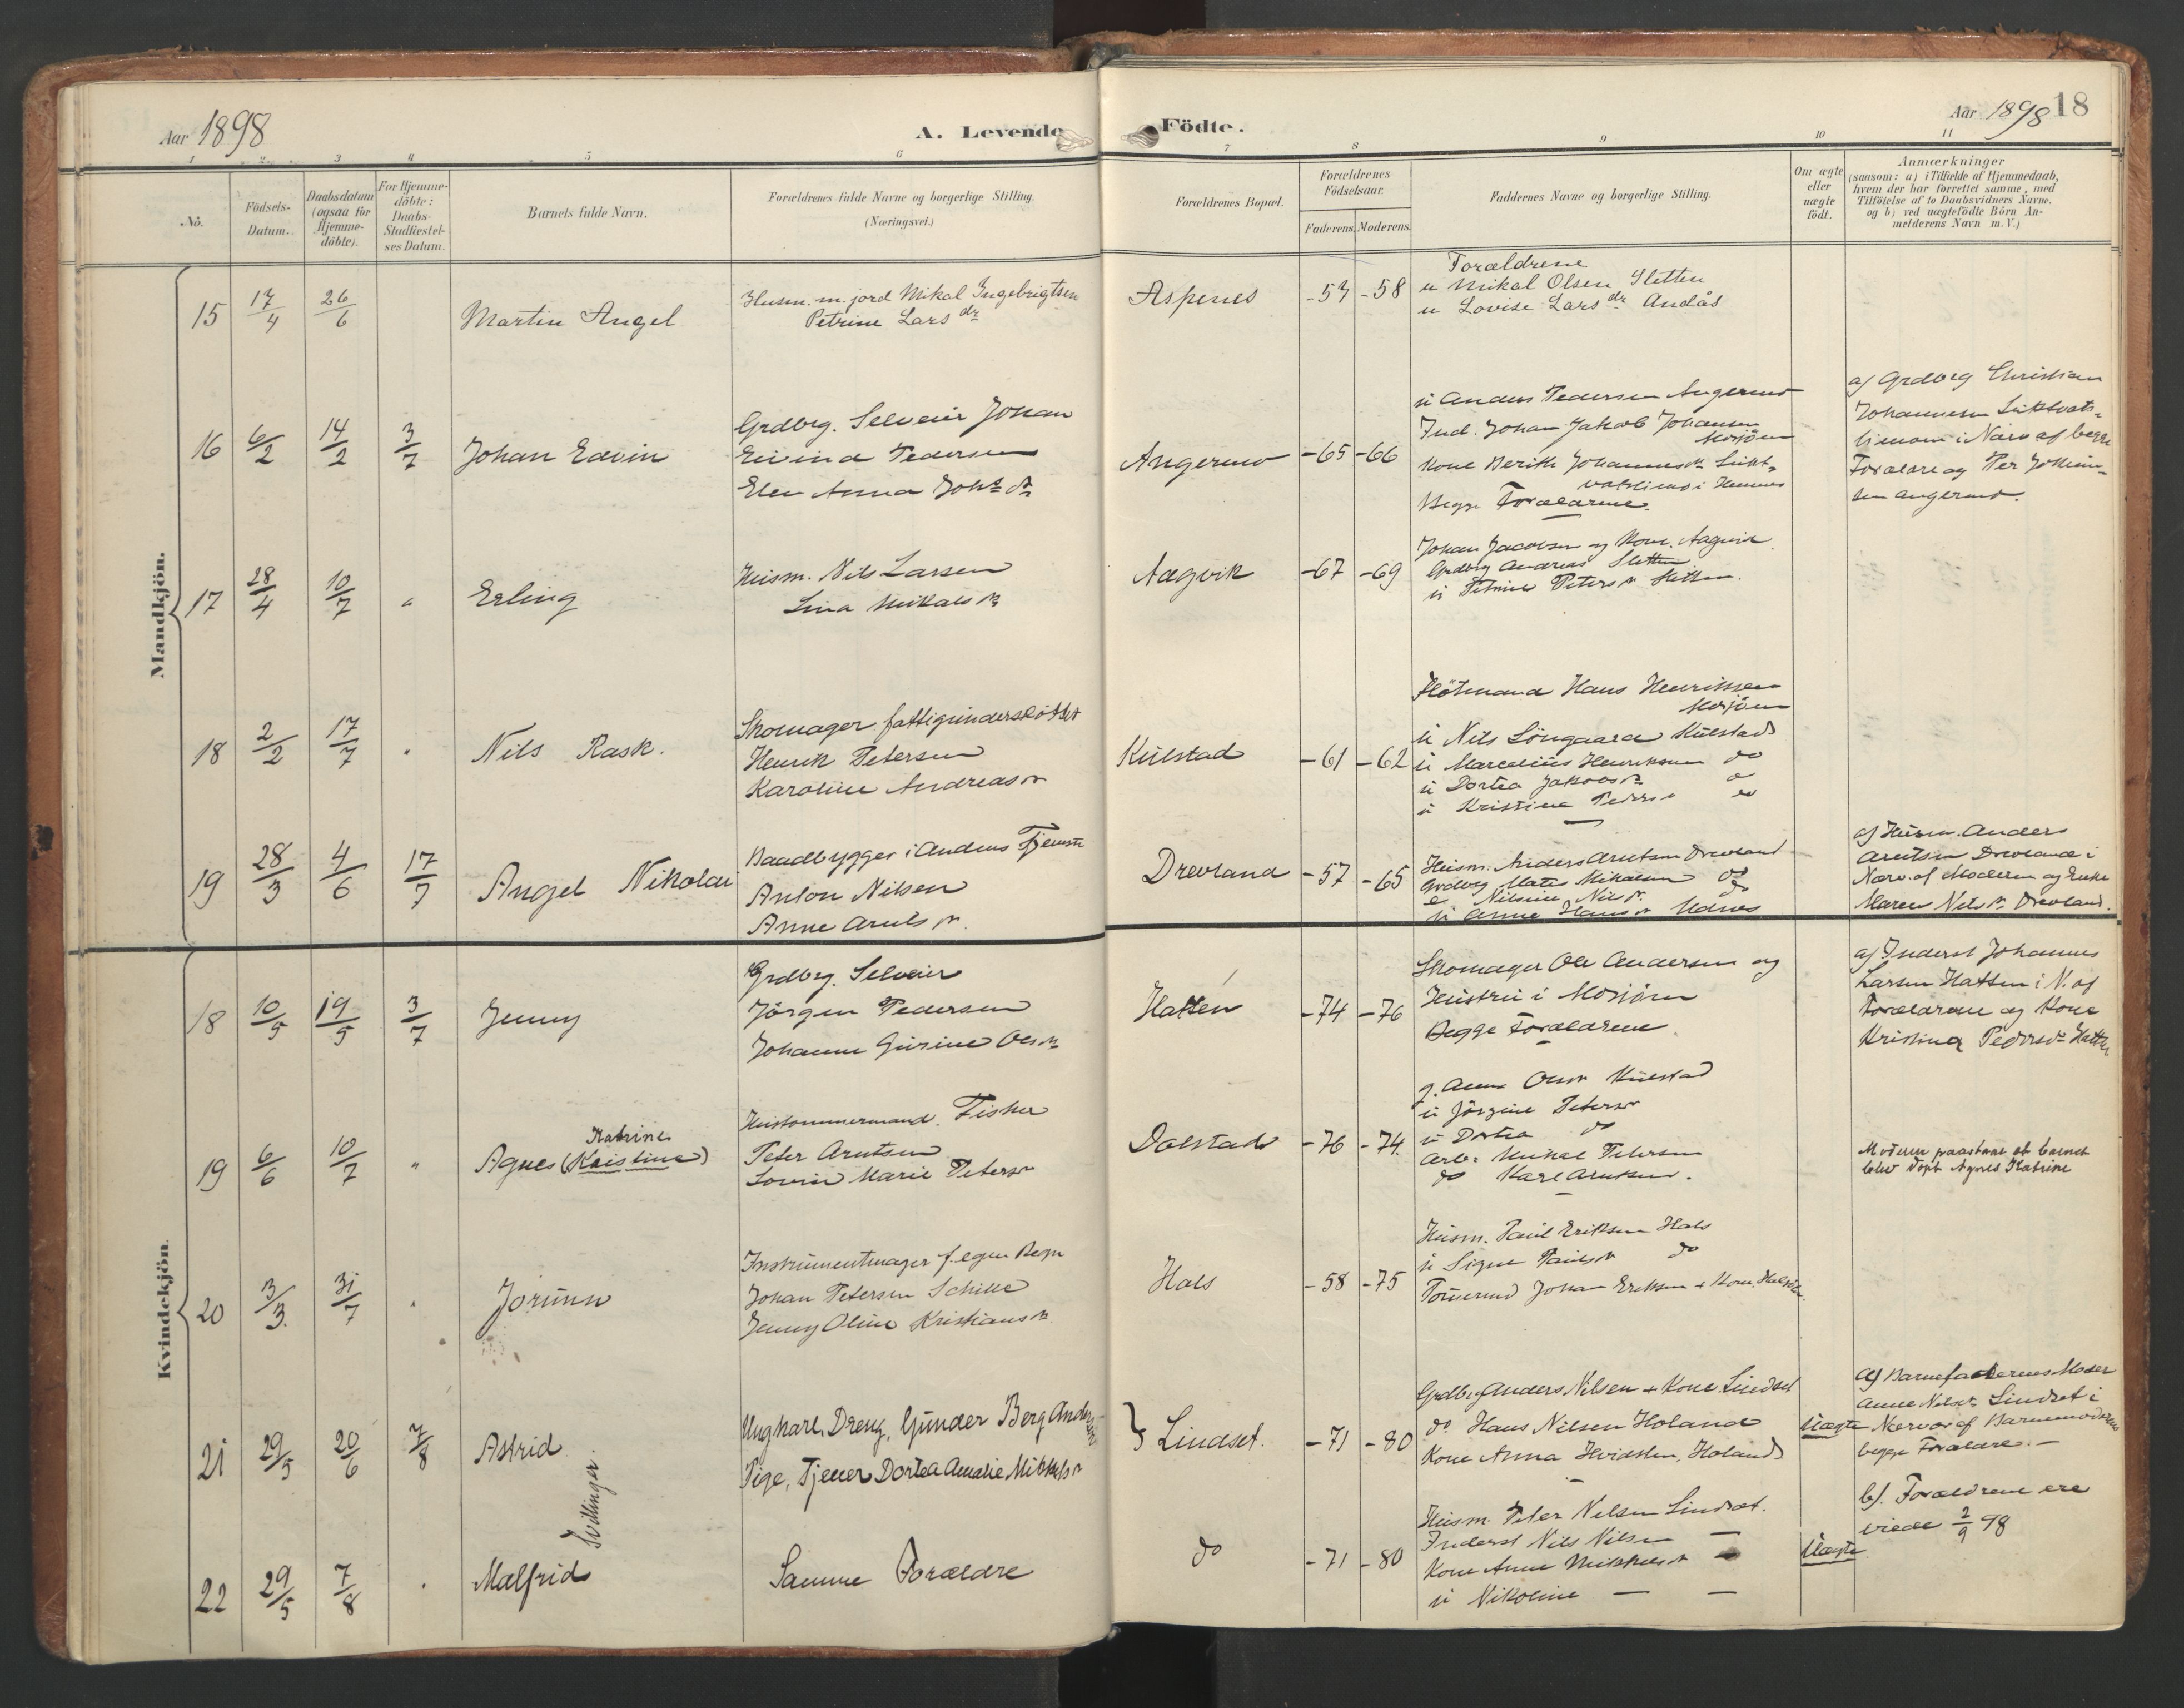 Aar 1898
A. Levende Födte.
Aar 1898 18
1 2 3 4 5 6 7 8 9 10 11
No.
Födsels-
Datum.
Daabsdatum
(ogsaa for
Hjemme-
döbte).
For Hjemme-
döbte:
Daabs-
Stadfæstel-
ses Datum.
Barnets fulde Navn.
Forældrenes fulde Navne og borgerlige Stilling.
(Næringsvei.)
Forældrenes Bopæl.
Forældrenes
Födselsaar.
Faderens. Moderens.
Faddernes Navne og borgerlige Stilling.
Om ægte
eller
uægte
födt.
Anmærkninger
(saasom: a) i Tilfælde af Hjemmedaab,
hvem der har forrettet samme, med
Tilföielse af to Daabsvidners Navne.
og b) ved uægtefödte Börn An-
melderens Navn m.V.)
Mandkjön.
15 17/4 26/6 Martin Angel
Husm. m. jord Mikal Ingebrigtsen
Petrine Larsdr
Aspenes -57 -58
Forældrene
u Mikal Olsen Sletten
u Lovise Larsdr Andås
16 6/2 14/2 3/7 Johan Edvin
Grdbrg. Selveier Johan
Eivind Pedersen
Elen Anna Johsdr
Angermo -65 -66
ú Anders Pedersen Angermo
Ind. Johan Jakob Johansen
Mosjöen
Kone Berith Johannesdr
i Hemnes
Begge Forældrene.
af Grdbrg Christian
Johannesen
i Nærv af begge
Forældre og Per
Angermo.
17 28/4 10/7 " Erling
Húsm. Nils Larsen
Lina Mikalsdr
Aagvik -67 -69
Johan Jacobsen og Kone. Aagvik
Grdbrg Andreas Sletten
ú Petrine Petersdr Sletten.
18 2/2 17/7 " Nils Rask.
Skomager fattigunderstöttet
Henrik Petersen
Karoline Andreasdr
Kúlstad -61 -62
Hans Henriksen
Mosjöen
ú Nils Kúlstad
ú Marcelius Henriksen do
ú Dortea Jakobsdr do
ú Kristine Pedersdr do
19 28/3 4/6 17/7 Angel Nikolai
Baadbygger i Andens Tjeneste
Anton Nilsen
Anne Arntsdr.
Drevland -57 -65
Húsm. Anders Arntsen Drevland
Grdbrg Mikalsen do
Nilsine Nilsdr. do
ú Anne Hansdr
af Húsm. Anders
Arntsen Drevland i
Nærv. af Moderen og Enke
Maren Nilsdr Drevland.
Kvindekjön.
18 10/5 19/5 3/7 Jenny
Grdbrg. Selveier
Jörgen Pedersen
Johanne Gúrine Olsdr
Hatten -74 -76
Skomager Ole Andersen og
Hústrú i Mosjöen
Begge Forældrene.
af Inderst Johannes
Larsen Hatten i N. af
Forældrene og Kone
Kristina Pedersdr Hatten
19 6/6 10/7 " Agnes (Kristine)
Katrine
Hústömmermand. Fisker
Peter Arntsen
Lovise Marie Petersdr
Dolstad -76 -74.
g. Anne Olsdr Kúlstad
ú Jörgine Petersdr
ú Dortea do
Arb. Mikal Petersen
do Karl Arntsen.
Moderen paastaar at barnet
blev döpt Agnes Katrine
20 3/3. 31/7 " Jorúnn
Instrúmentmager f. egen Regn
Johan Petersen Schille
Jenny Oline Kristiansdr
Hals -58 -75
Húsm. Paúl Eriksen Hals
ú Signe Paúlsdr do
Johan Eriksen + Kone
21 29/5 20/6 7/8 Astrid
Tvillinger.
Ungkarl, Dreng, Gúnder Berg Andersen
Pige, Tjener Dortea Amalie Mikkelsdr
} Lindset. -71 -80
Grdbrg Anders Nilsen + Kone Lindset
do Hans Nilsen Holand
Kone Anna Holand
Uægte
Af Barnefaderens Moder
Anne Nilsdr Lindset i
Nærvær af Barnemoderens
begge Forældre. —
22 29/5 7/8 " Malfrid
Samme Forældre
do -71 -80
Húsm. Peter Nilsen Lindset.
Inderst Nils Nilsen —
Kone Anne Mikkelsdr —
ú Nikoline — —
Uægte
b). Forældrene ere
viede 2/9 98